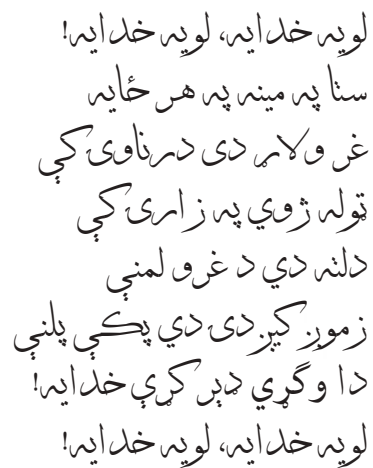 لويه خدايه، لويه خدايه!
ستا په مينه په هر ځايه
غر ولاړ دی درناوی کې
ټوله ژوي په زاری کې
دلته دي د غرو لمنې
زموږ کېږدی دي پکې پلنې
دا وګړي ډېر کړې خدايه!
لويه خدايه، لويه خدايه!